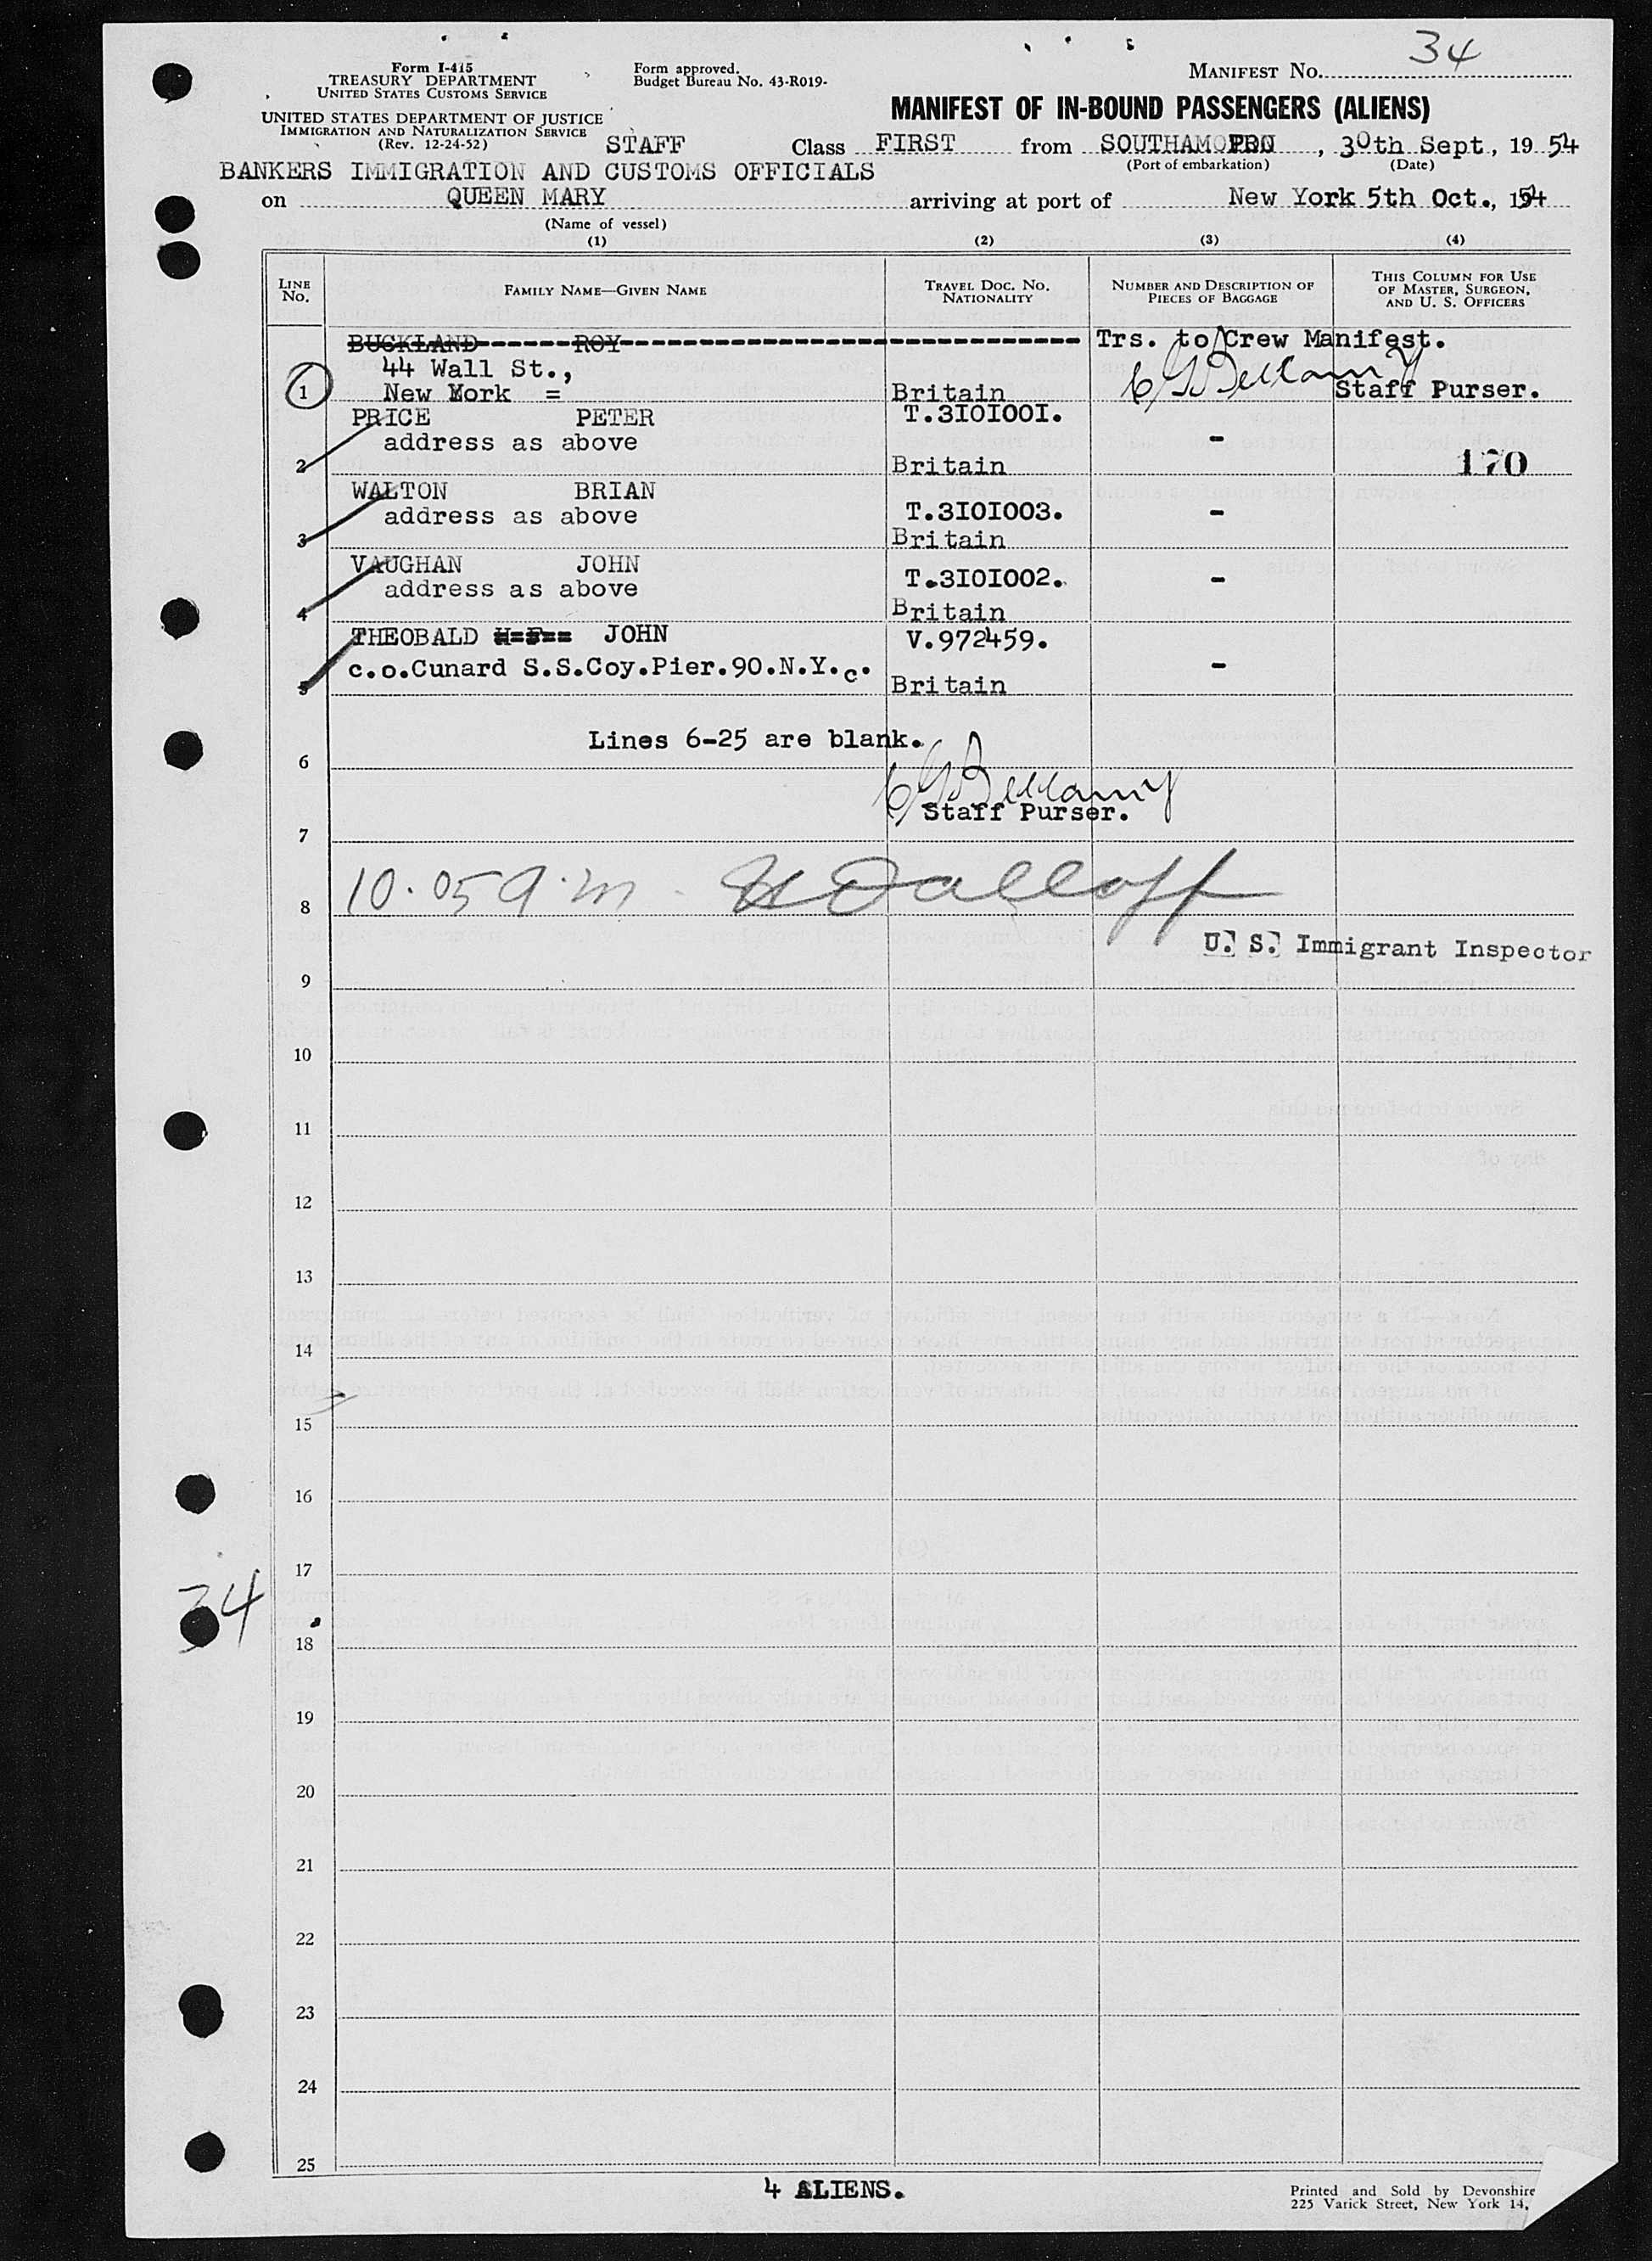 34
Form I-415
TREASURY DEPARTMENT
UNITED STATES CUSTOMS SERVICE
Form approved.
Budget Bureau No. 43-R019-
MANIFEST NO.
UNITED STATES DEPARTMENT OF JUSTICE
IMMIGRATION AND NATURALIZATION SERVICE
(Rev. 12-24-52)
MANIFEST OF IN-BOUND PASSENGERS (ALIENS)
STAFF Class FIRST from , 30th Sept, 19 54
(Port of embarkation) (Date)
BANKERS IMMIGRATION AND CUSTOMS OFFICIALS
on QUEEN MARY arriving at port of New York 5th Oct., 1954
(Name of vessel)
(1) (2) (3) (4)
LINE No. FAMILY NAME—GIVEN NAME TRAVEL DOC. NO. NATIONALITY NUMBER AND DESCRIPTION OF PIECES OF BAGGAGE THIS COLUMN FOR USE OF MASTER, SURGEON, AND U. S. OFFICERS
BUCKLAND------ROY---------------------------- Trs. to Crew Manifest.
44 Wall St.,
1 New York = Britain C G Bellamy Staff Purser.
PRICE PETER T.3101001.
address as above -
2 Britain 170
WALTON BRIAN
address as above T.3101003. -
3 Britain
VAUGHAN JOHN T.3101002. -
address as above
4 Britain
THEOBALD JOHN V.972459.
c.o.Cunard S.S.Coy.Pier.90.N.Y.c. -
5 Britain
Lines 6-25 are blank.
6
C G Bellamy
Staff Purser.
7
10.05 a.m.
8
U. S. Immigrant Inspector
9
10
11
12
13
14
15
16
17
34
18
19
20
21
22
23
24
25
4 ALIENS.
Printed and Sold by Devonshire
225 Varick Street, New York 14,